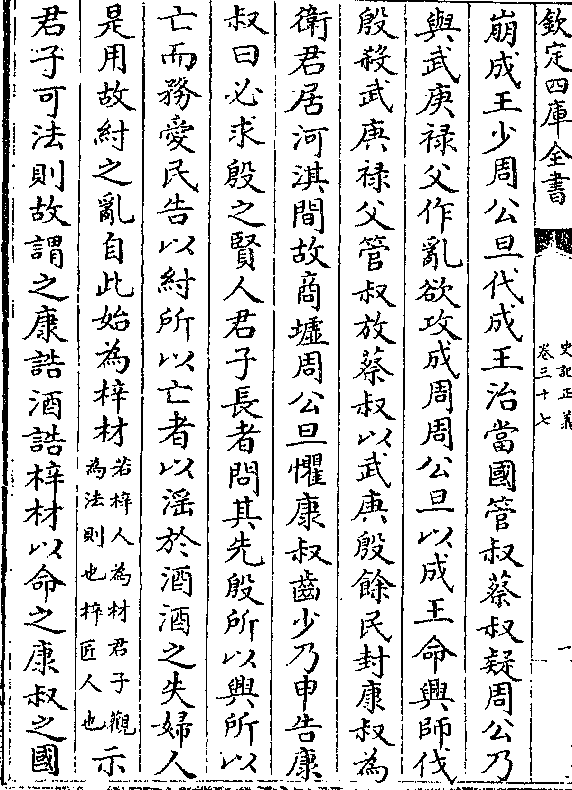 欽定四庫全書
史記正義
卷三十七
一
崩成王少周公旦代成王治當國管叔蔡叔疑周公乃
與武庚禄父作亂欲攻成周周公旦以成王命興師伐
殷殺武庚禄父管叔放蔡叔以武庚殷餘民封康叔為
衛君居河淇間故商墟周公旦懼康叔齒少乃申告康
叔曰必求殷之賢人君子長者問其先殷所以興所以
亡而務愛民告以紂所以亡者以滛於酒酒之失婦人
是用故紂之亂自此始為梓材若梓人為材君子觀為法則也梓匠人也示
君子可法則故謂之康誥酒誥梓材以命之康叔之國